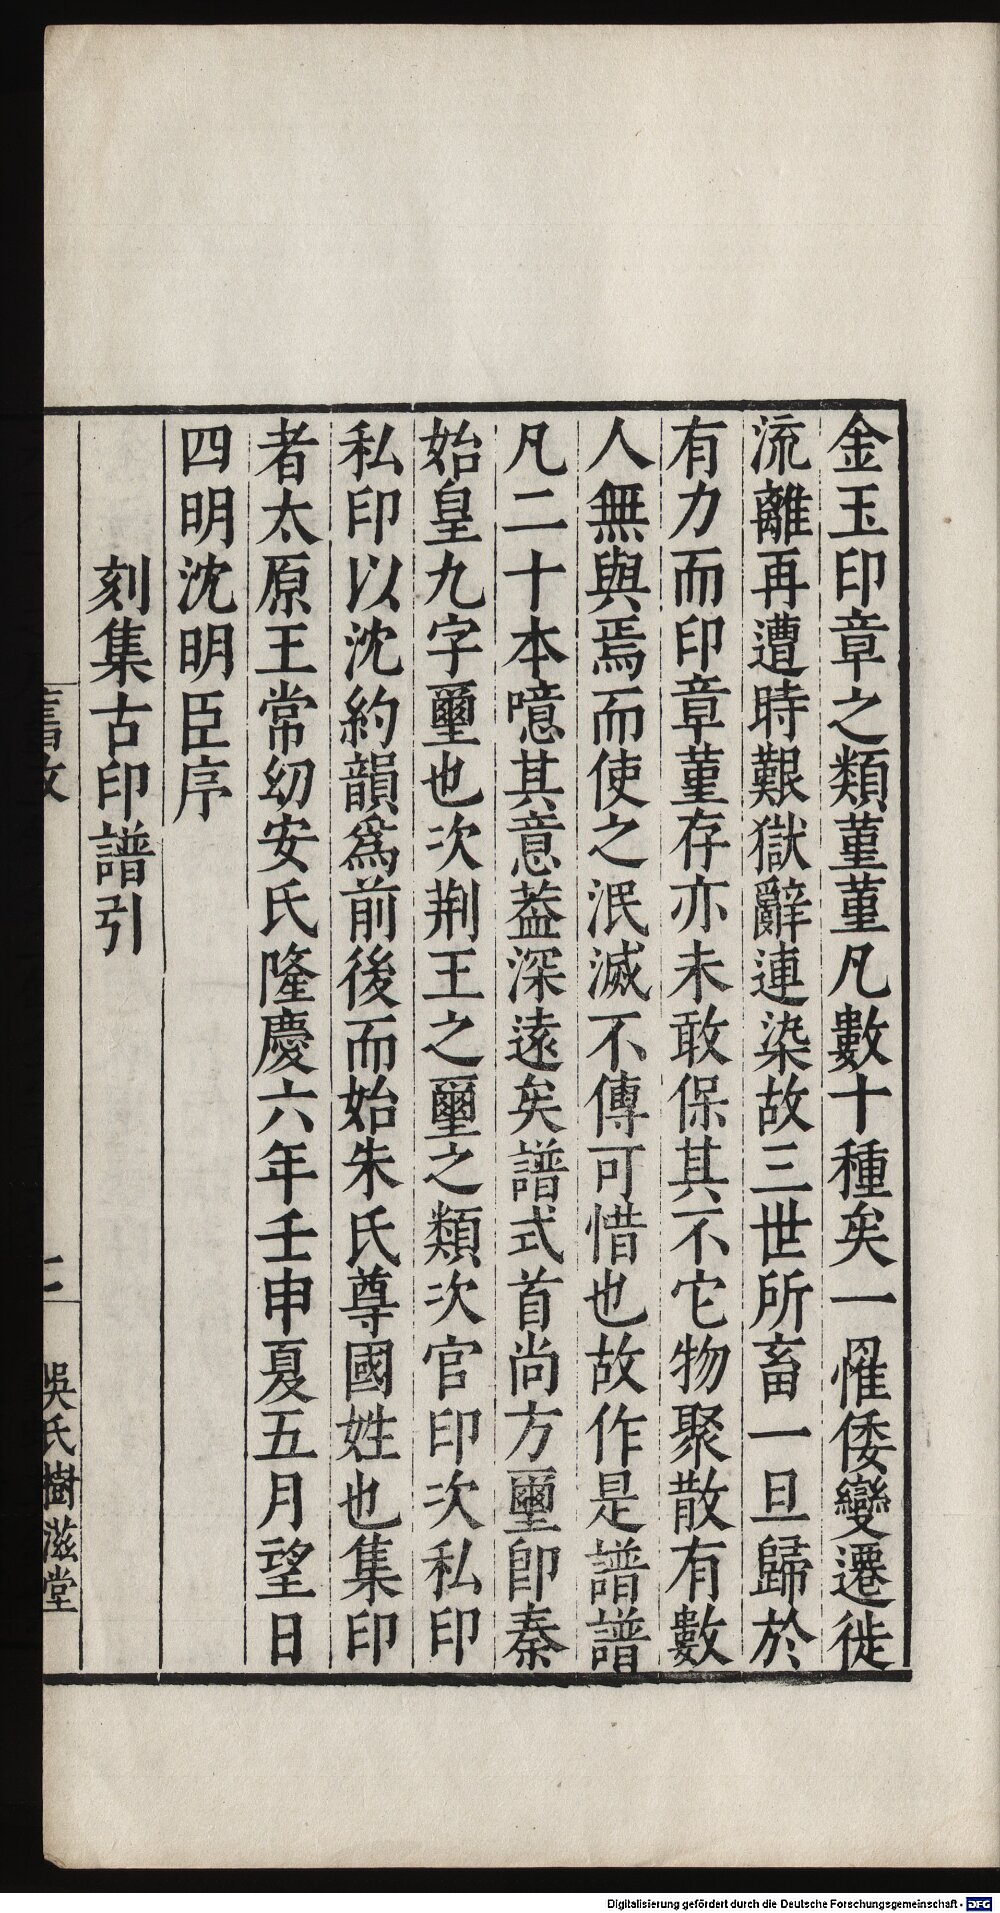 金玉印章之類菫菫凡數十種矣一罹倭變遷徙
流離再遭時艱獄辭連染故三世所畜一旦歸於
有力而印章菫存亦未敢保其不它物聚散有數
人無與焉而使之泯滅不傳可惜也故作是譜譜
凡二十本噫其意葢深遠矣譜式首尚方璽卽秦
始皇九字璽也次荆王之璽之類次官印次私印
私印以沈約韻爲前後而始朱氏尊國姓也集印
者太原王常幼安氏隆慶六年壬申夏五月望日
四明沈明臣序
刻集古印譜引
吳氏樹滋堂
Digitalisierung gefördert durch die Deutsche Forschungsgemeinschaft - DFG